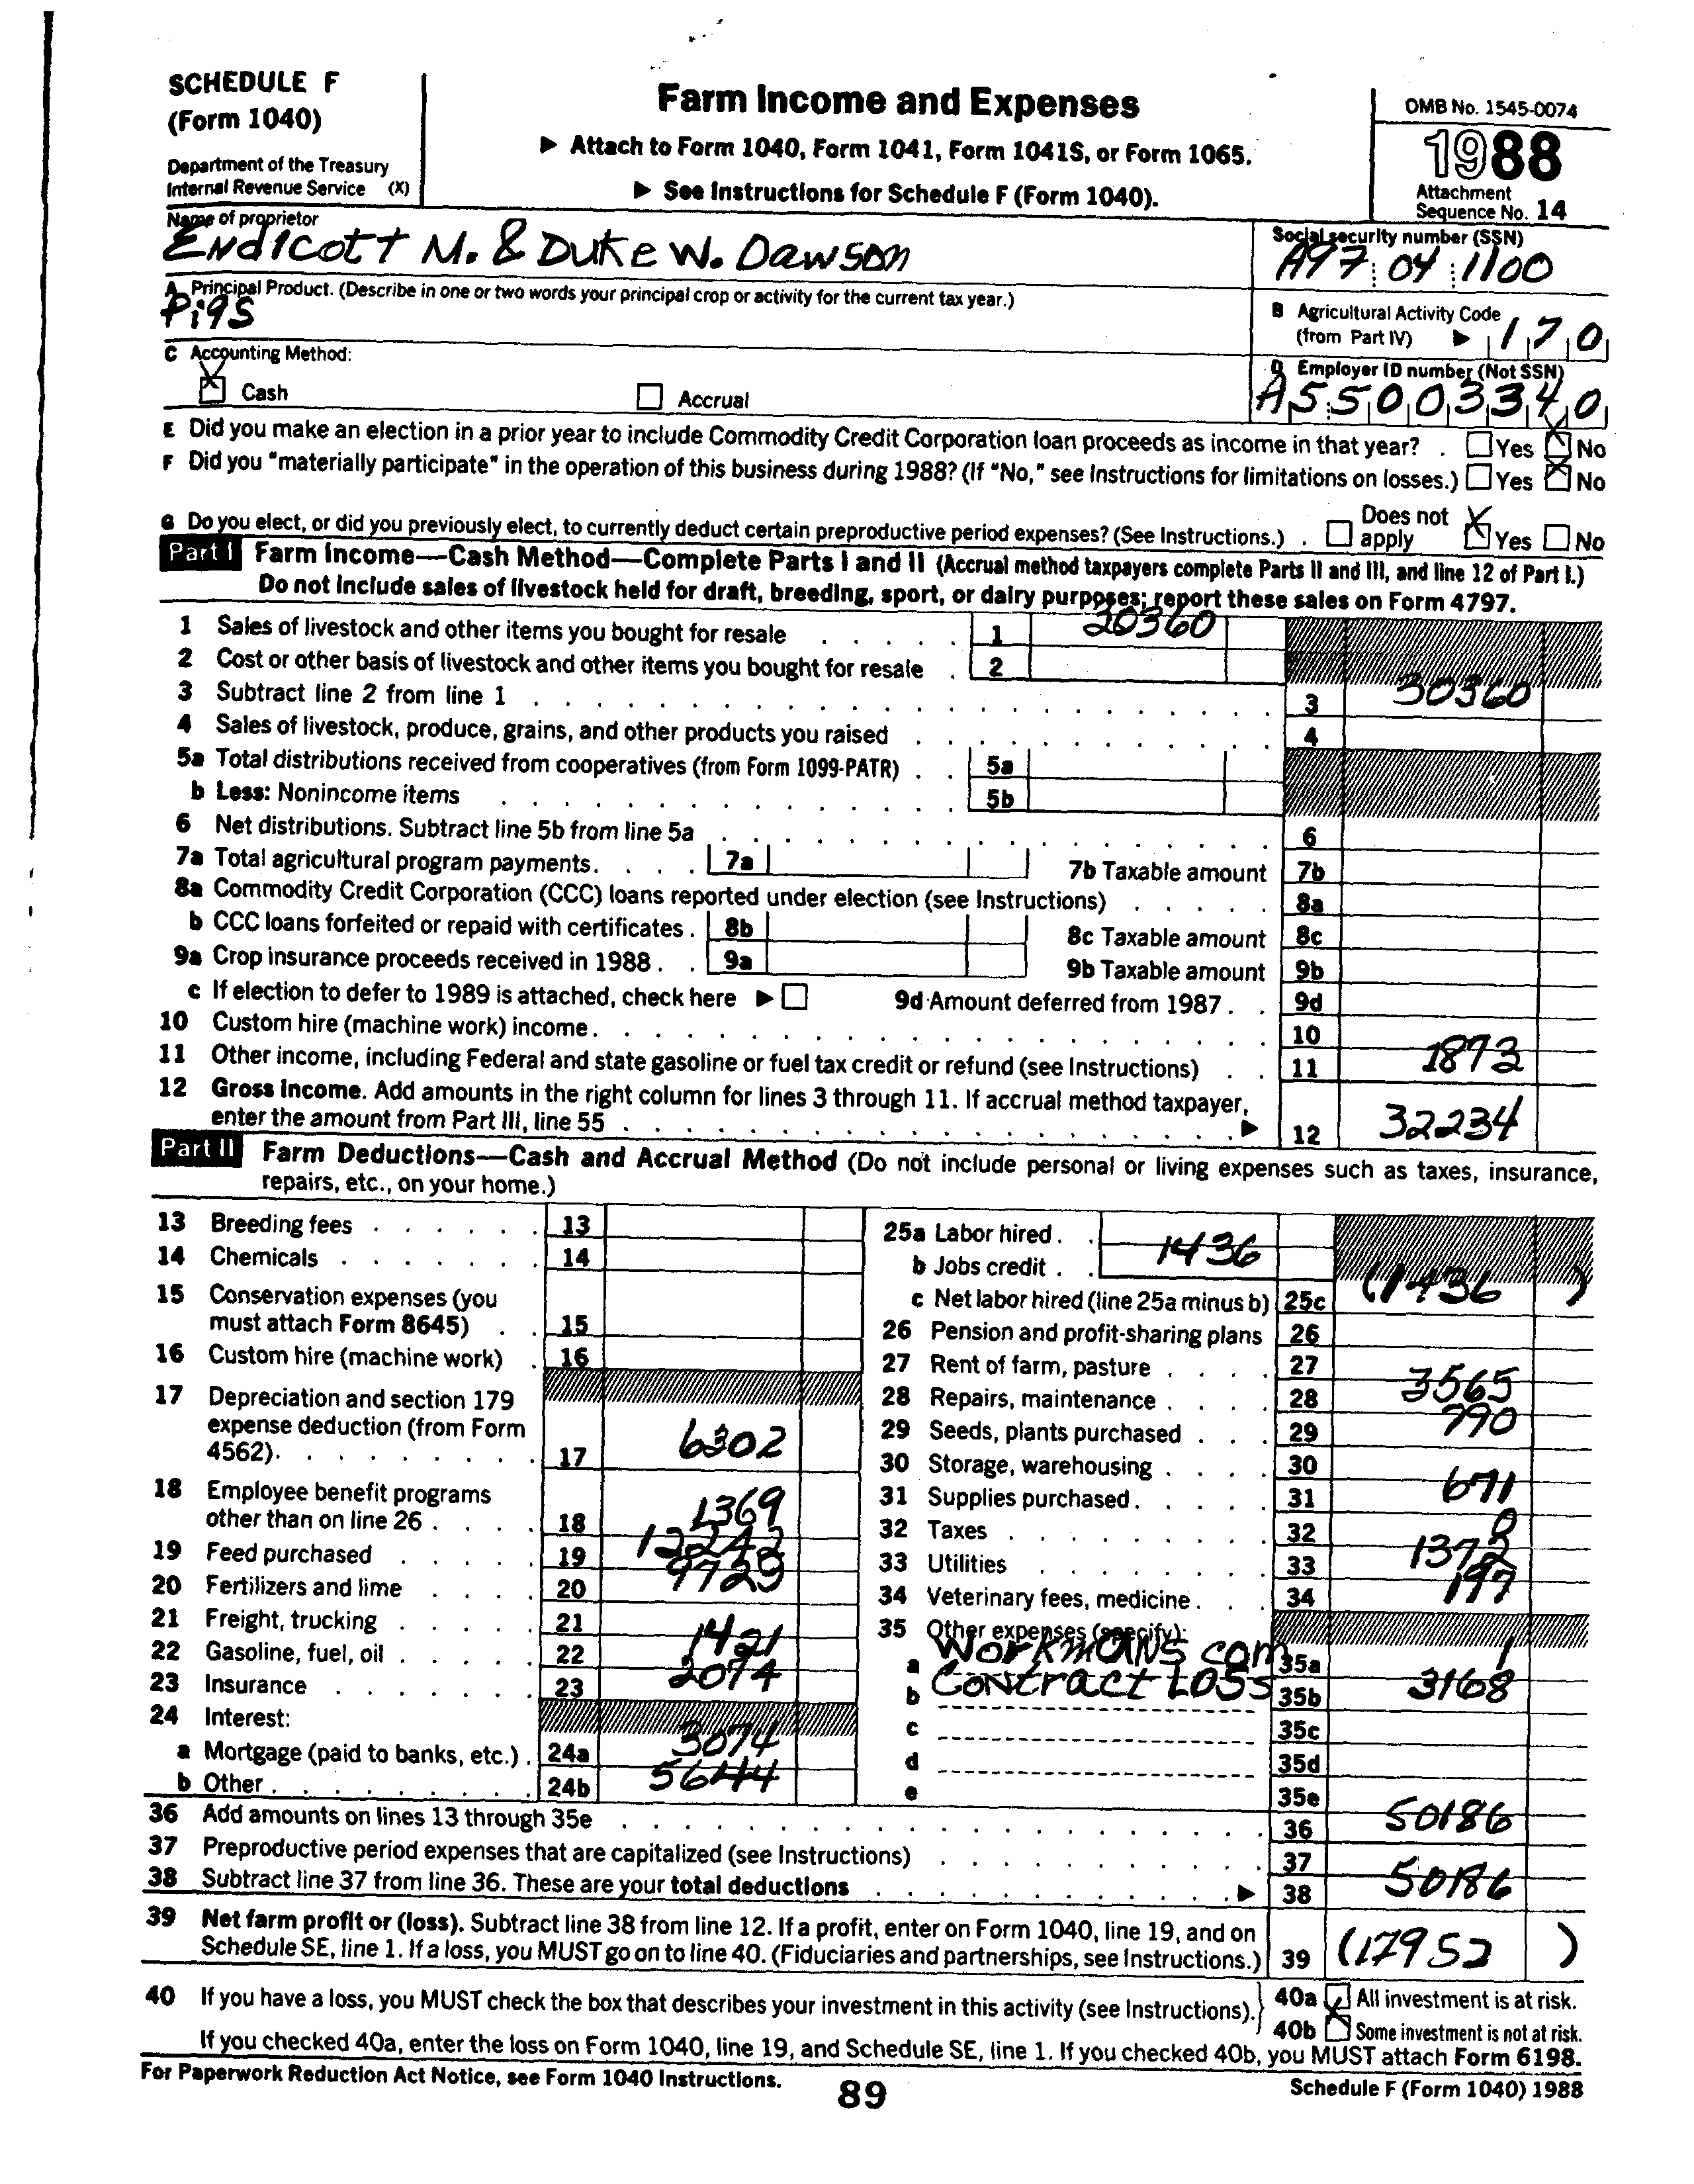 SCHEDULE F
(Form 1040)
Department of the Treasury
Internal Revenue Service (X)
Farm Income and Expenses
▶ Attach to Form 1040, Form 1041, Form 1041S, or Form 1065.
▶ See Instructions for Schedule F (Form 1040).
OMB No. 1545-0074
1988
Attachment
Sequence No. 14
Name of proprietor
Endicott M. & Duke W. Dawson
Social security number (SSN)
A97 04 1100
A Principal Product. (Describe in one or two words your principal crop or activity for the current tax year.)
Pigs
B Agricultural Activity Code
(from Part IV) ▶ 170
C Accounting Method:
Cash Accrual
D Employer ID number (Not SSN)
A55003340
E Did you make an election in a prior year to include Commodity Credit Corporation loan proceeds as income in that year? . Yes No
F Did you "materially participate" in the operation of this business during 1988? (If "No," see Instructions for limitations on losses.) Yes No
G Do you elect, or did you previously elect, to currently deduct certain preproductive period expenses? (See Instructions.) . Does not apply Yes No
Part I Farm Income—Cash Method—Complete Parts I and II (Accrual method taxpayers complete Parts II and III, and line 12 of Part I.)
Do not include sales of livestock held for draft, breeding, sport, or dairy purposes; report these sales on Form 4797.
1 Sales of livestock and other items you bought for resale 1 30360
2 Cost or other basis of livestock and other items you bought for resale 2
3 Subtract line 2 from line 1 3 30360
4 Sales of livestock, produce, grains, and other products you raised 4
5a Total distributions received from cooperatives (from Form 1099-PATR) 5a
b Less: Nonincome items 5b
6 Net distributions. Subtract line 5b from line 5a 6
7a Total agricultural program payments. 7a 7b Taxable amount 7b
8a Commodity Credit Corporation (CCC) loans reported under election (see Instructions) 8a
b CCC loans forfeited or repaid with certificates . 8b 8c Taxable amount 8c
9a Crop insurance proceeds received in 1988 . 9a 9b Taxable amount 9b
c If election to defer to 1989 is attached, check here ▶ 9d Amount deferred from 1987 . 9d
10 Custom hire (machine work) income . 10
11 Other income, including Federal and state gasoline or fuel tax credit or refund (see Instructions) 11 1873
12 Gross income. Add amounts in the right column for lines 3 through 11. If accrual method taxpayer,
enter the amount from Part III, line 55 ▶ 12 32234
Part II Farm Deductions—Cash and Accrual Method (Do not include personal or living expenses such as taxes, insurance,
repairs, etc., on your home.)
13 Breeding fees 13
14 Chemicals 14
15 Conservation expenses (you
must attach Form 8645) 15
16 Custom hire (machine work) 16
17 Depreciation and section 179
expense deduction (from Form
4562). 17 6302
18 Employee benefit programs
other than on line 26 . 18 1369
19 Feed purchased 19 12242
20 Fertilizers and lime 20 9729
21 Freight, trucking 21
22 Gasoline, fuel, oil 22 1421
23 Insurance 23 2074
24 Interest:
a Mortgage (paid to banks, etc.) . 24a 3074
b Other . 24b 5644
25a Labor hired . 1436
b Jobs credit .
c Net labor hired (line 25a minus b) 25c (1436)
26 Pension and profit-sharing plans 26
27 Rent of farm, pasture 27
28 Repairs, maintenance 28 3565
29 Seeds, plants purchased 29 790
30 Storage, warehousing 30
31 Supplies purchased . 31 671
32 Taxes 32 0
33 Utilities 33 1372
34 Veterinary fees, medicine . 34 197
35 Other expenses (specify):
a Workmans com 35a 1
b Contract Loss 35b 3168
c 35c
d 35d
e 35e
36 Add amounts on lines 13 through 35e 36 50186
37 Preproductive period expenses that are capitalized (see Instructions) 37
38 Subtract line 37 from line 36. These are your total deductions ▶ 38 50186
39 Net farm profit or (loss). Subtract line 38 from line 12. If a profit, enter on Form 1040, line 19, and on
Schedule SE, line 1. If a loss, you MUST go on to line 40. (Fiduciaries and partnerships, see Instructions.) 39 (17952)
40 If you have a loss, you MUST check the box that describes your investment in this activity (see Instructions). 40a All investment is at risk.
40b Some investment is not at risk.
If you checked 40a, enter the loss on Form 1040, line 19, and Schedule SE, line 1. If you checked 40b, you MUST attach Form 6198.
For Paperwork Reduction Act Notice, see Form 1040 Instructions.
89
Schedule F (Form 1040) 1988